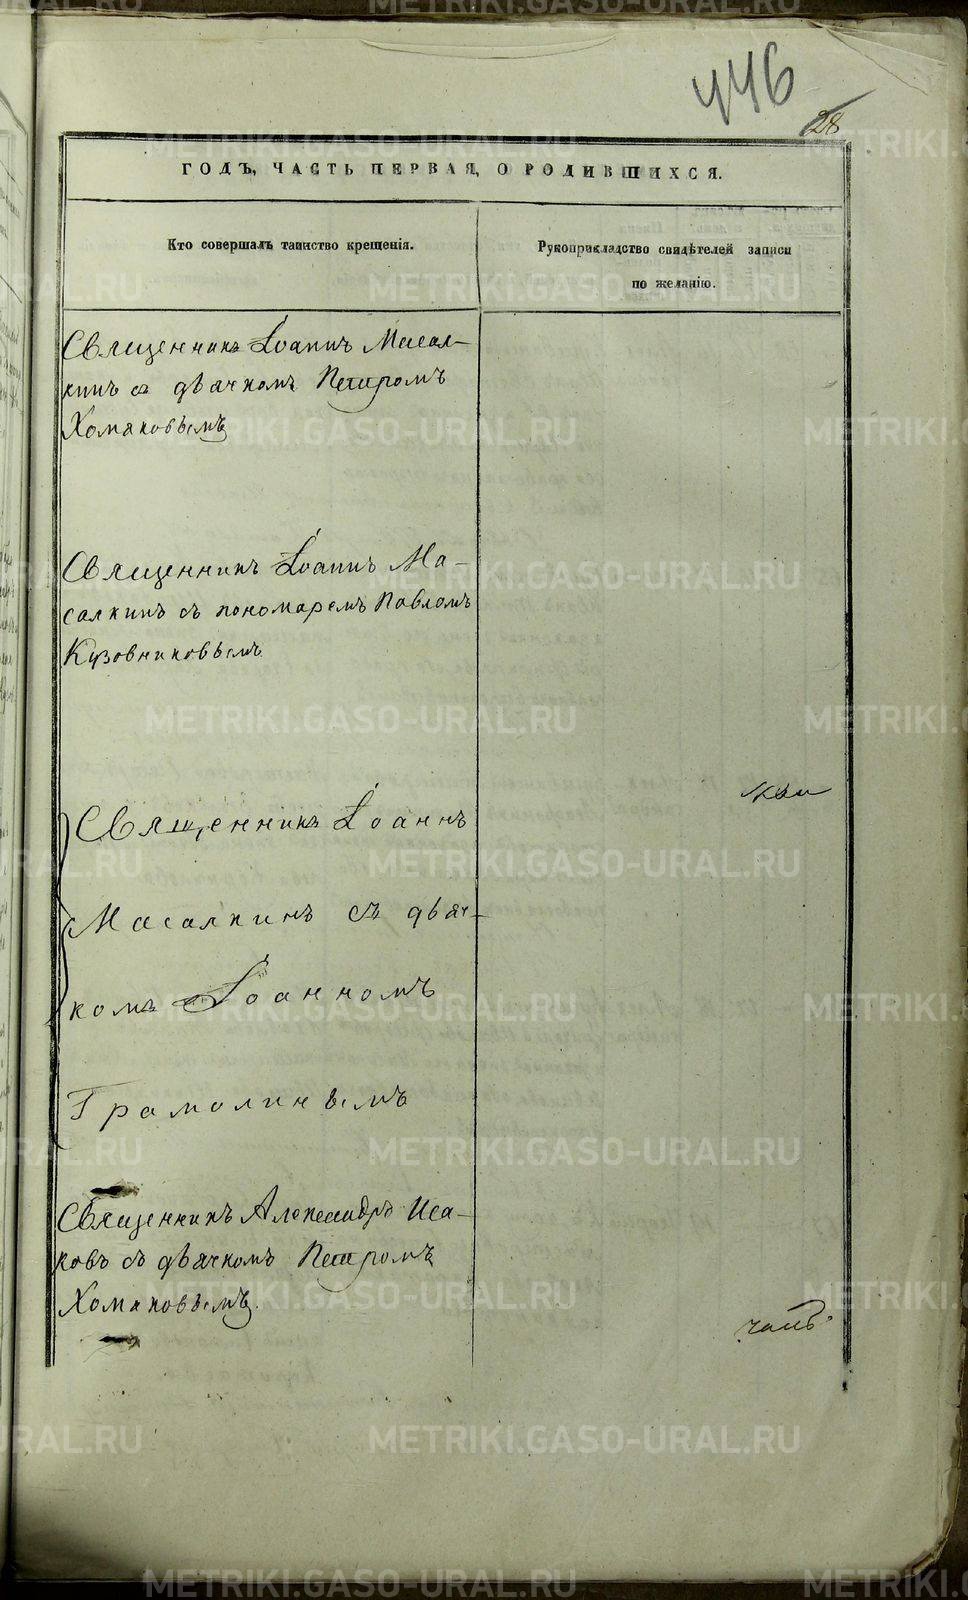 446
28
ГОДЪ, ЧАСТЬ ПЕРВАЯ, О РОДИВШИХСЯ.
Кто совершалъ таинство крещенія.
Рукоприкладство свидѣтелей записи
по желанію.
Священникъ Іоаннъ Масал-
кинъ съ дьячкомъ Петромъ
Хомяковымъ
Священникъ Іоаннъ Ма-
салкинъ съ пономаремъ Павломъ
Кузовниковымъ
Священникъ Іоаннъ
Масалкинъ съ дьяч-
комъ Іоанномъ
Грамолинымъ
Священникъ Александръ Иса-
ковъ съ дьячкомъ Петромъ
Хомяковымъ.
METRIKI.GASO-URAL.RU